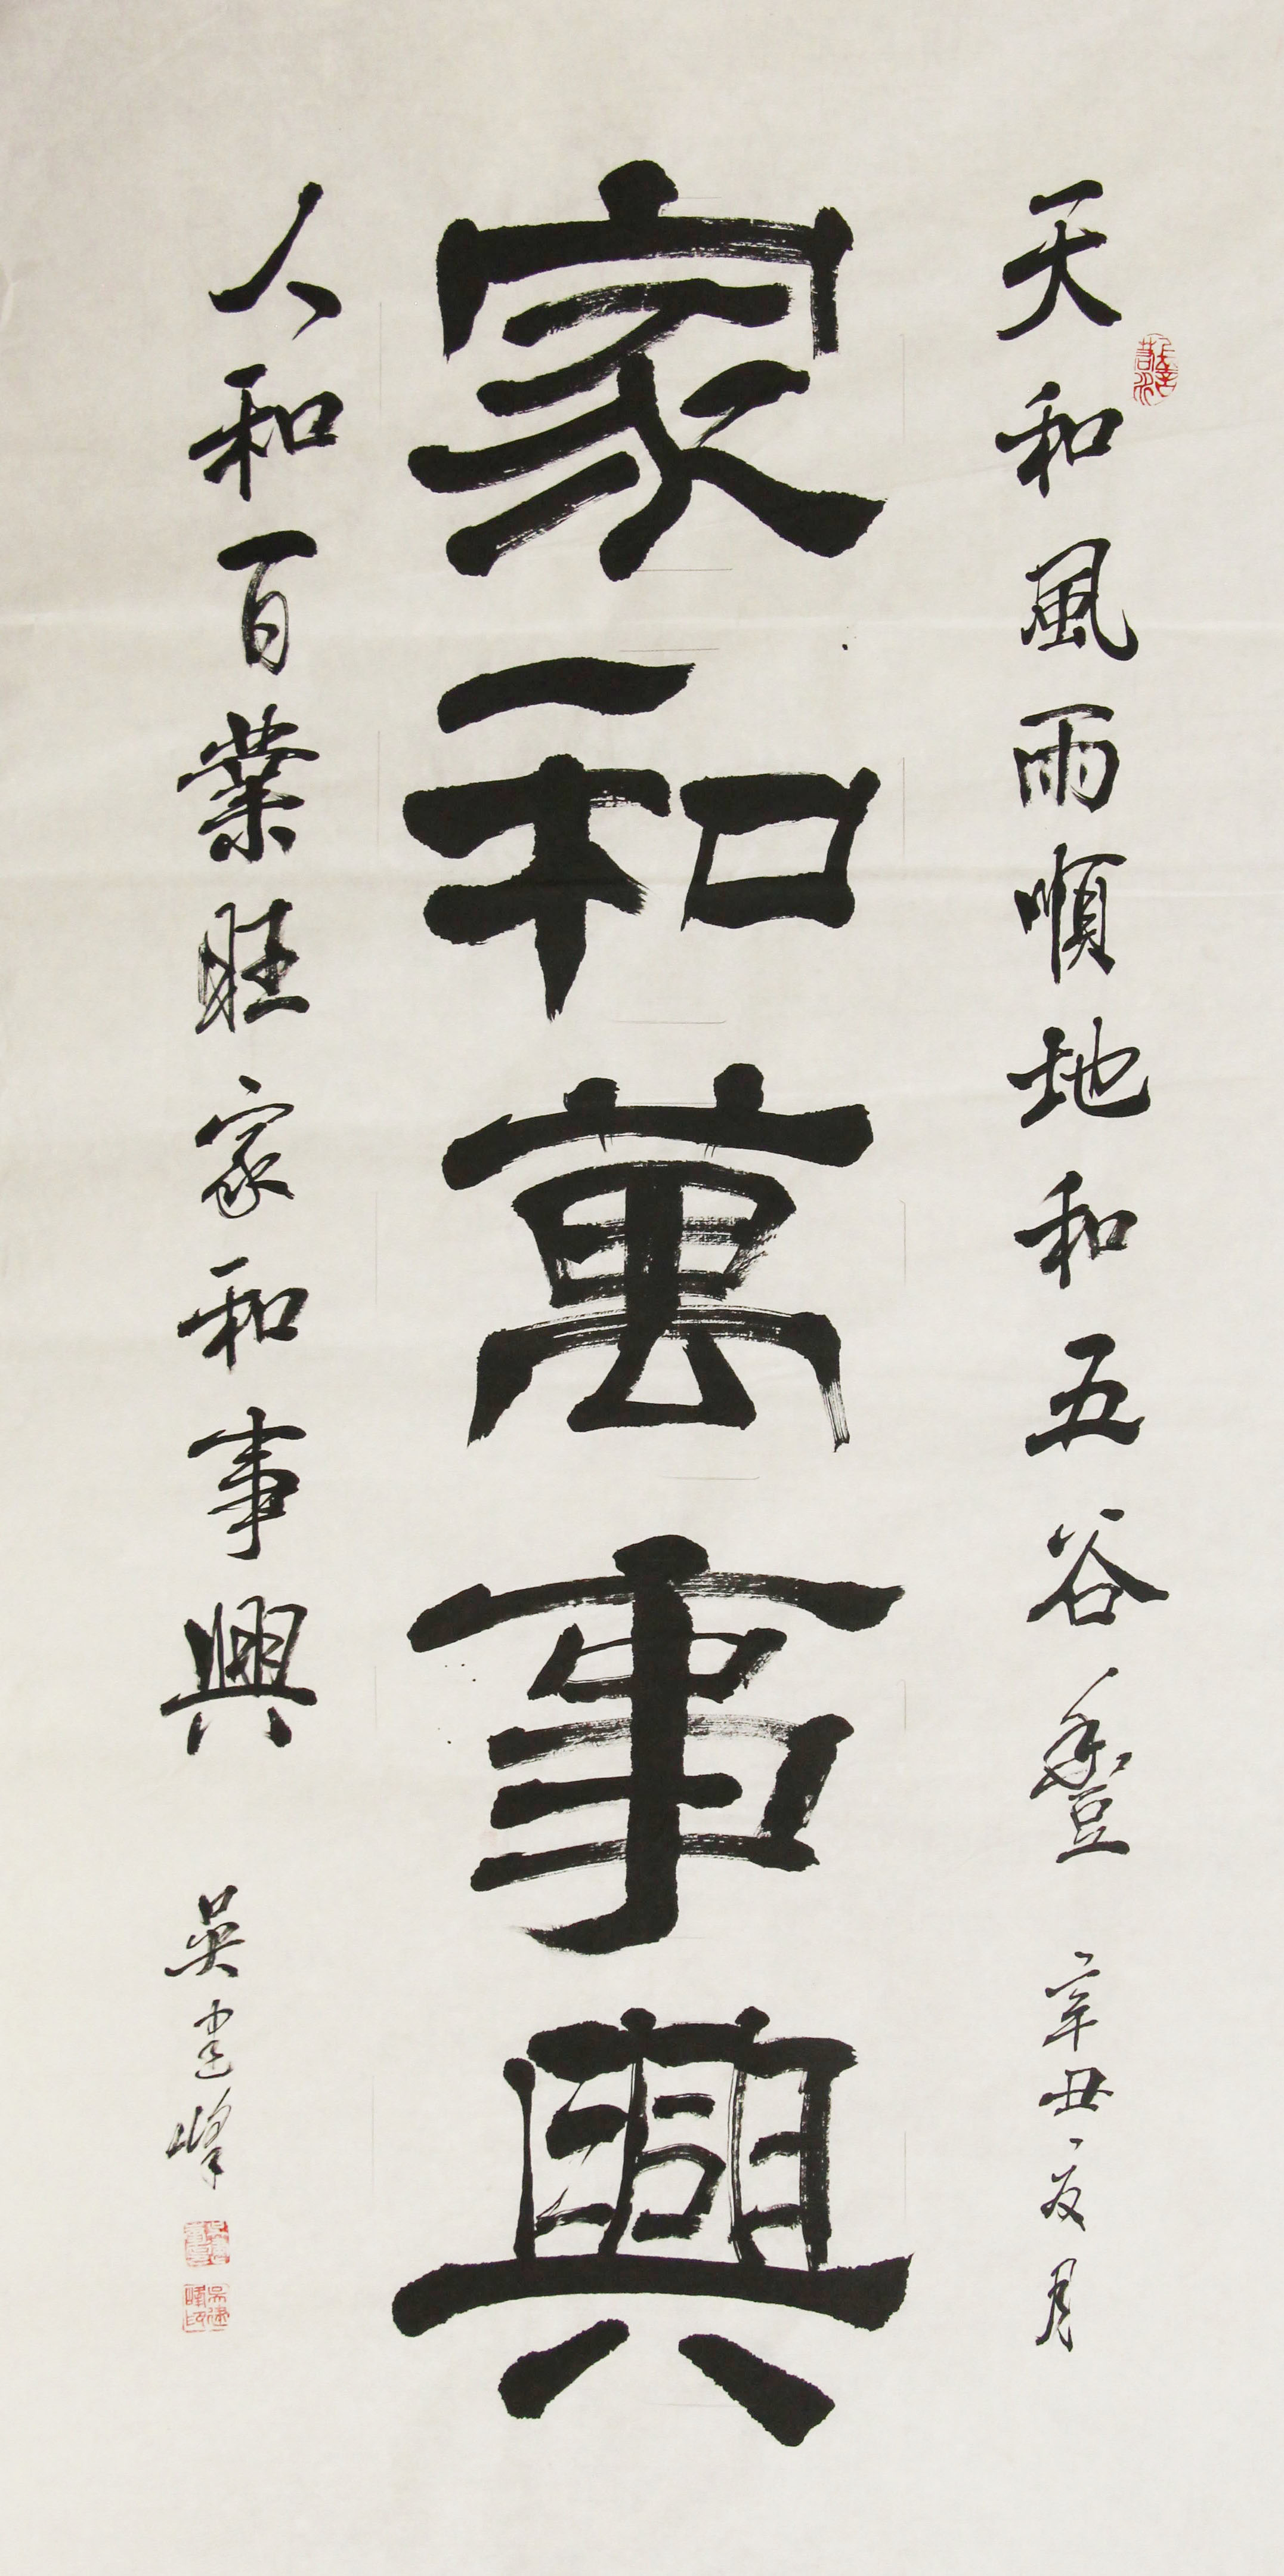 天和風雨順地和五谷豐 辛丑夏月
家和萬事興
人和百業旺家和事興 吴建峰